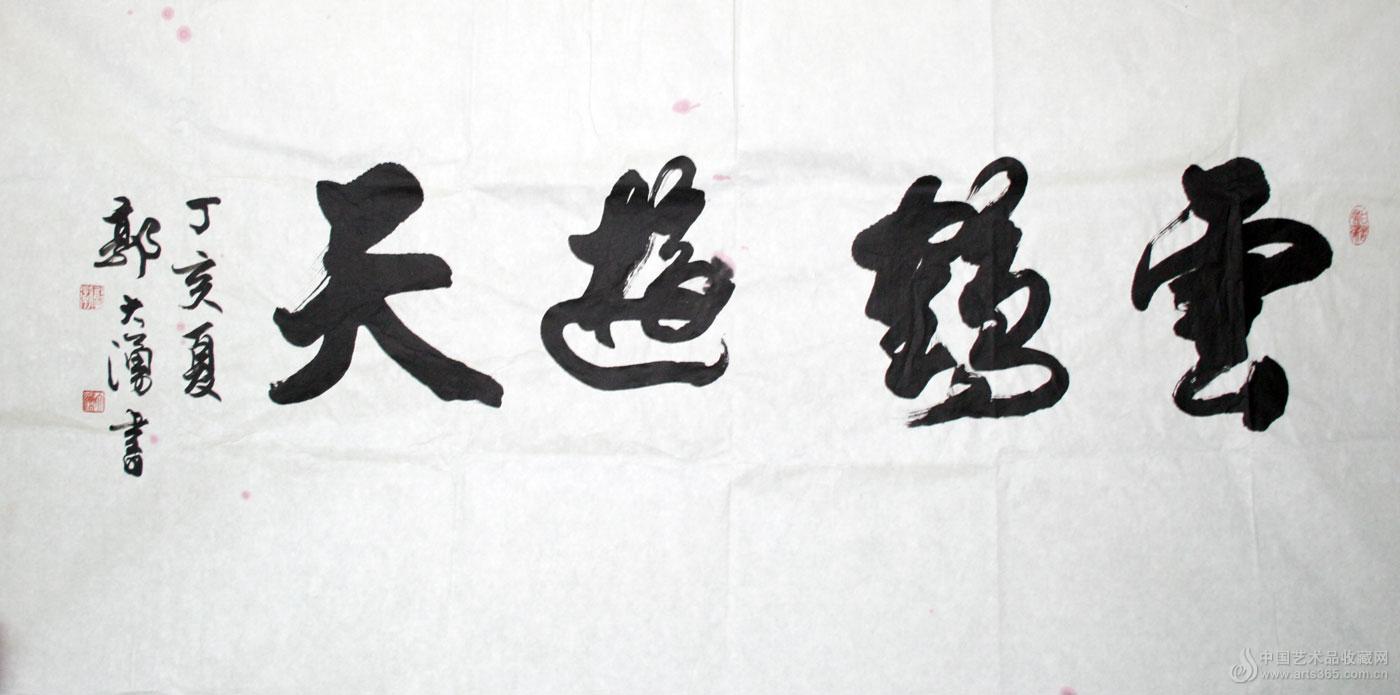 雲鶴遊天
丁亥夏
郭大湧書
中国艺术品收藏网
www.arts365.com.cn